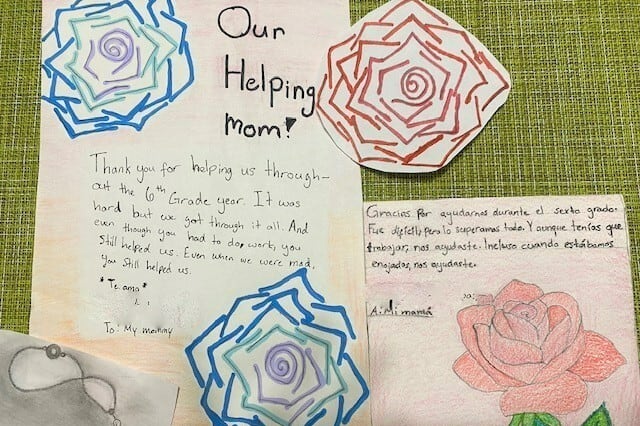 Our
Helping
mom!
Thank you for helping us through-
out the 6th Grade year. It was
hard but we got through it all. And
even though you had to do work, you
still helped us. Even when we were mad,
you still helped us.
*Te amo*
To: My mommy
Gracias por ayudarnos durante el sexto grado.
Fue dificil, pero lo superamos todo. Y aunque tenías que
trabajar, nos ayudaste. Incluso cuando estábamos
enojados, nos ayudaste.
A: Mi mamá